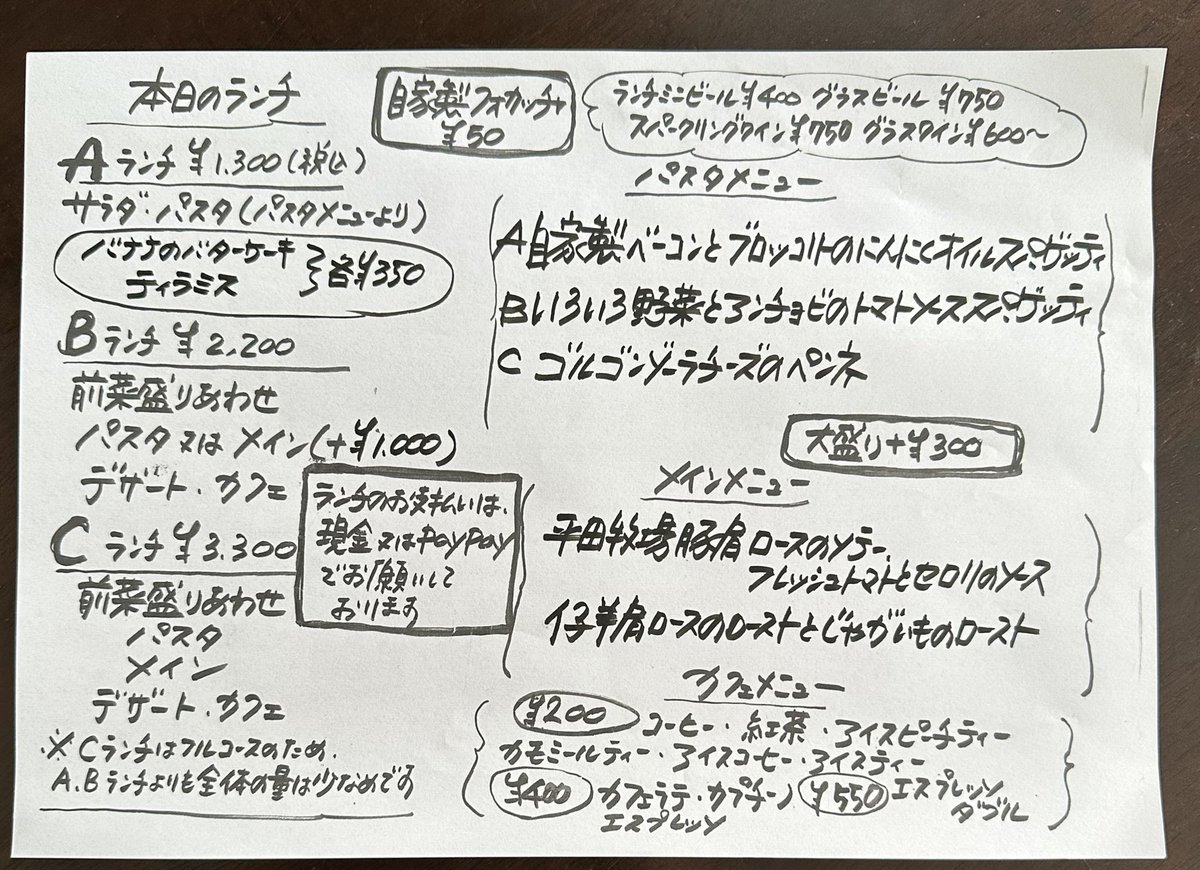 本日のランチ
Aランチ ¥1,300(税込)
サラダ・パスタ(パスタメニューより)
バナナのバターケーキ
ティラミス }各¥350
Bランチ ¥2,200
前菜盛りあわせ
パスタ又はメイン(+¥1,000)
デザート・カフェ
Cランチ ¥3,300
前菜盛りあわせ
パスタ
メイン
デザート・カフェ
※Cランチはフルコースのため、
A、Bランチよりも全体の量は少なめです
ランチのお支払いは、
現金又はPayPay
でお願いして
おります
自家製フォカッチャ
¥50
ランチミニビール¥400 グラスビール ¥750
スパークリングワイン¥750 グラスワイン¥600〜
パスタメニュー
A自家製ベーコンとブロッコリーのにんにくオイルスパゲッティ
Bいろいろ野菜とアンチョビのトマトソーススパゲッティ
C ゴルゴンゾーラチーズのペンネ
大盛り+¥300
メインメニュー
平田牧場豚肩ロースのソテー、
フレッシュトマトとセロリのソース
仔羊肩ロースのローストとじゃがいものロースト
カフェメニュー
¥200 コーヒー・紅茶・アイスピーチティー
カモミールティー・アイスコーヒー・アイスティー
¥400 カフェラテ・カプチーノ ¥550 エスプレッソ
エスプレッソ ダブル